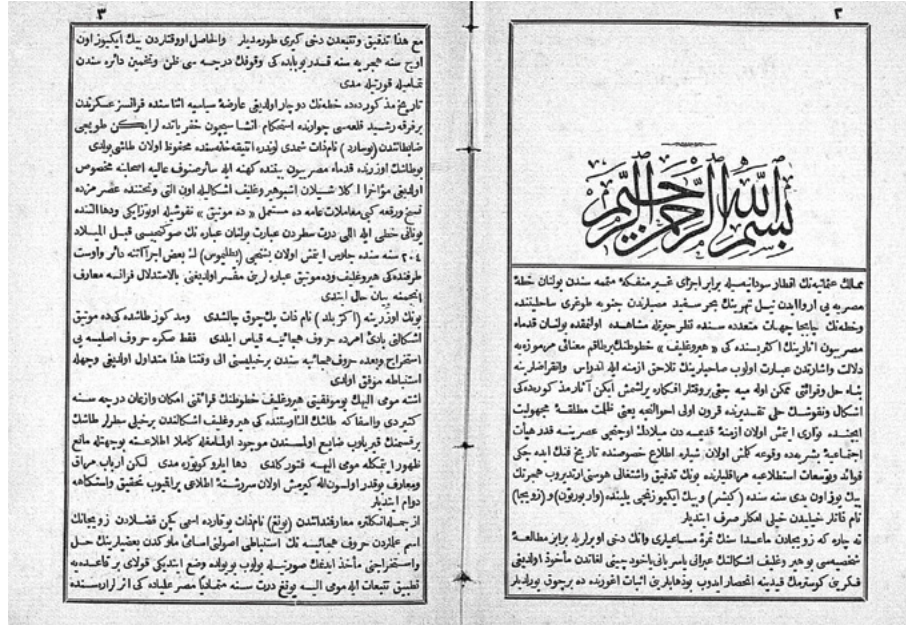 ٢
بسم الله الرحمن الرحيم
ممالك عثمانيه‌نك اقطار سودانيه‌سيله برابر اجزاى غير منفكهٔ متممه سندن بولنان خطهٔ
مصريه يى اروا ايدن نيل نهرينك بحر سفيد مصبلرندن جنوبه طوغرى ساحلينده
وخطه‌نك جهات متعدده سنده نظر حيرتله مشاهده اولنمقده بولنان قدماء
مصريون اثارينك اكثريسنده كى « هيروغليف » خطوطنك برطاقم معنائى مرموزه يه
دلالت واشارتدن عبارت اولوب صاحبلرينك تلاحق ازمنه ايله اندراس وانقراضلرينه
حل وقرائتى ممكن اوله ميه جغى افكاره يرلشمش ايكن آثار مذكوره‌ده كى
اشكال ونقوشك حلى تقديرنده قرون اولى احوالنجه يعنى ظلمت مطلقهٔ مجهوليت
ايجنده اولان ازمنهٔ قديمه دن ميلادك اوچنجى عصرينه قدر هيأت
اجتماعيهٔ بشريه‌ده وقوعه كلمش اولان شيلره اطلاع خصوصنده تاريخ فنك ايده جكى
فوائد وتوسعات استطلاعيه مراقليلرنده بونك تدقيق واشتغالى هوسنى اويندروب هجرتك
بيك يوز اون يدى سنه سنده (كنشر) وبيك ايكيوز ييلنده (واربورتون) و (زويجا)
نام ذاتلر خيليدن خيلى افكار صرف ايتديلر
نه چاره كه زويجادن ماعدا سنك ثمرهٔ مساعيلرى وانك دخى
شخصيه‌سى بو هيروغليف اشكالنك عبرانى ياسريانى ياخود چينى لغاتندن مأخوذ اولديغى
فكرينى كوسترمك قيدينه انحصار ايدوب بوذهابلرينى اثبات اغورنده ده برچوق يورلديلر
٣
مع هذا تدقيق وتتبعدن دخى كيرى طورمديلر والحاصل اووقتدن بيك ايكيوز اون
اوچ سنه هجريه سنه قدر بوبابده كى وقوفك درجه سى ظن وتخمين دائره سندن
تماميله قورتيله مدى
تاريخ مذكورده‌ده خطه‌نك دوچار اولديغى عارضهٔ سياسيه اثنا سنده فرانسز عسكرندن
برفرقه رشيد قلعه‌سى جوارنده استحكام انشا سيچون حفرياتده ايكن طوپجى
ضابطانندن (بوسارد) نام ذات شمدى لوندره انتيقه‌خانه‌سنده محفوظ اولان طاشى بولدى
بوطاشك اوزرنده قدماء مصريون بيننده كهنه ايله سائر صنوف عاليه اصحابنه مخصوص
اولديغى مؤخراً اكلاشيلان اشبو هيروغليف اشكاليله اون التى وتحتنده عصرمزده
نسخ ورقعه كبى معاملات عامه ده مستعمل « ده موتيق » نقوشيله اوتوزايكى ودها التنده
يونانى خطى ايله اللى درت سطردن عبارت بولنان عباره نك صوكنجيسى قبل الميلاد
٢٠٤ سنه سنده جلوس ايتمش اولان بشنجى (بطلميوس) ك بعض اجراآتنه دائر واوست
طرفنده‌كى هيروغليف وده موتيق عباره لرينى مفسر اولديغنى بالاستدلال فرانسه معارف
انجمننه بيان حال ايتدى
بونك اوزرينه (اكربلد) نام ذات پك‌چوق چالشدى ومذكور طاشده‌كى ده موتيق
اشكالنى بادئ امرده حروف هجائيه‌يه قياس ايلدى فقط صكره حروف اصليه يى
استخراج وبعده حروف هجائيه سندن برخيليسنى الى وقتنا هذا متداول اولديغى وجهله
استنباطه موفق اولدى
اشته مومى اليهك بوموفقيتى هيروغليف خطوطنك قرائتنى امكان واذعان درجه سنه
كتيردى واسفا كه طاشك الك اوستنده كى هيروغليف اشكالندن برخيلى سطرلر طاشك
برقسمنك قيريلوب ضايع اولمسندن موجود اولمامغله كاملا اطلاعنه بوجهتله مانع
ظهور ايتمكله مومى اليهه فتور كلدى دها ايلرو كوتوره مدى لكن ارباب مراق
ومعارف نوقدر اولسون‌اله كيرمش اولان سررشتهٔ اطلاعى براقيوب تحقيق واستكناهه
دوام ايتديلر
ازجمله انكلتره معارفمنداتندن (يونغ) نام‌ذات يوقاريده اسمى كچن فضلادن زويجانك
اسم علملردن حروف هجائيه نك استنباطى اصولنى اساس طوتوب بعضيلرينك حل
واستخراجنى مأخذ ايدنمك صورتيله ولوب بوبابده وضع ايتديكى قولاى بر قاعده‌يه
تطبيق تتبعات ايله مومى اليه يونغ درت سنه متماديا مصر علياده كى اثرلر اره‌سنده